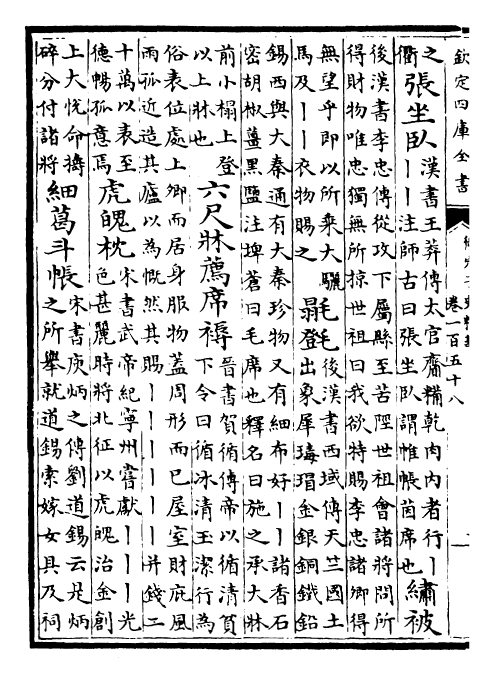 欽定四庫全書
卷一百五十八
之
衝
張坐臥
漢書王莽傳太官齎糒乾肉内者行丨
丨丨注師古曰張坐臥謂帷帳茵席也
繡被
後漢書李忠傳從攻下屬縣至苦陘世祖會諸將問所
得財物唯忠獨無所掠世祖曰我欲特賜李忠諸卿得
無望乎即以所乗大驪
馬及丨丨衣物賜之
毾㲪
後漢書西域傳天竺國土
出象犀瑇瑁金銀銅鐵鉛
錫西與大秦通有大秦珍物又有細布好丨丨諸香石
密胡椒薑黑鹽注埤蒼曰毛席也釋名曰施之承大牀
前小榻上登
以上牀也
六尺牀薦席褥
晉書賀循傳帝以循清貧
下令曰循冰清玉潔行為
俗表位處上卿而居身服物蓋周形而已屋室財庇風
雨孤近造其廬以為慨然其賜丨丨丨丨丨丨并錢二
十萬以表至
德暢孤意焉
虎魄枕
宋書武帝紀寧州嘗獻丨丨丨光
色甚麗時將北征以虎魄治金創
上大悦命擣
碎分付諸將
細葛斗帳
宋書庾炳之傳劉道錫云是炳
之所舉就道錫索嫁女具及祠